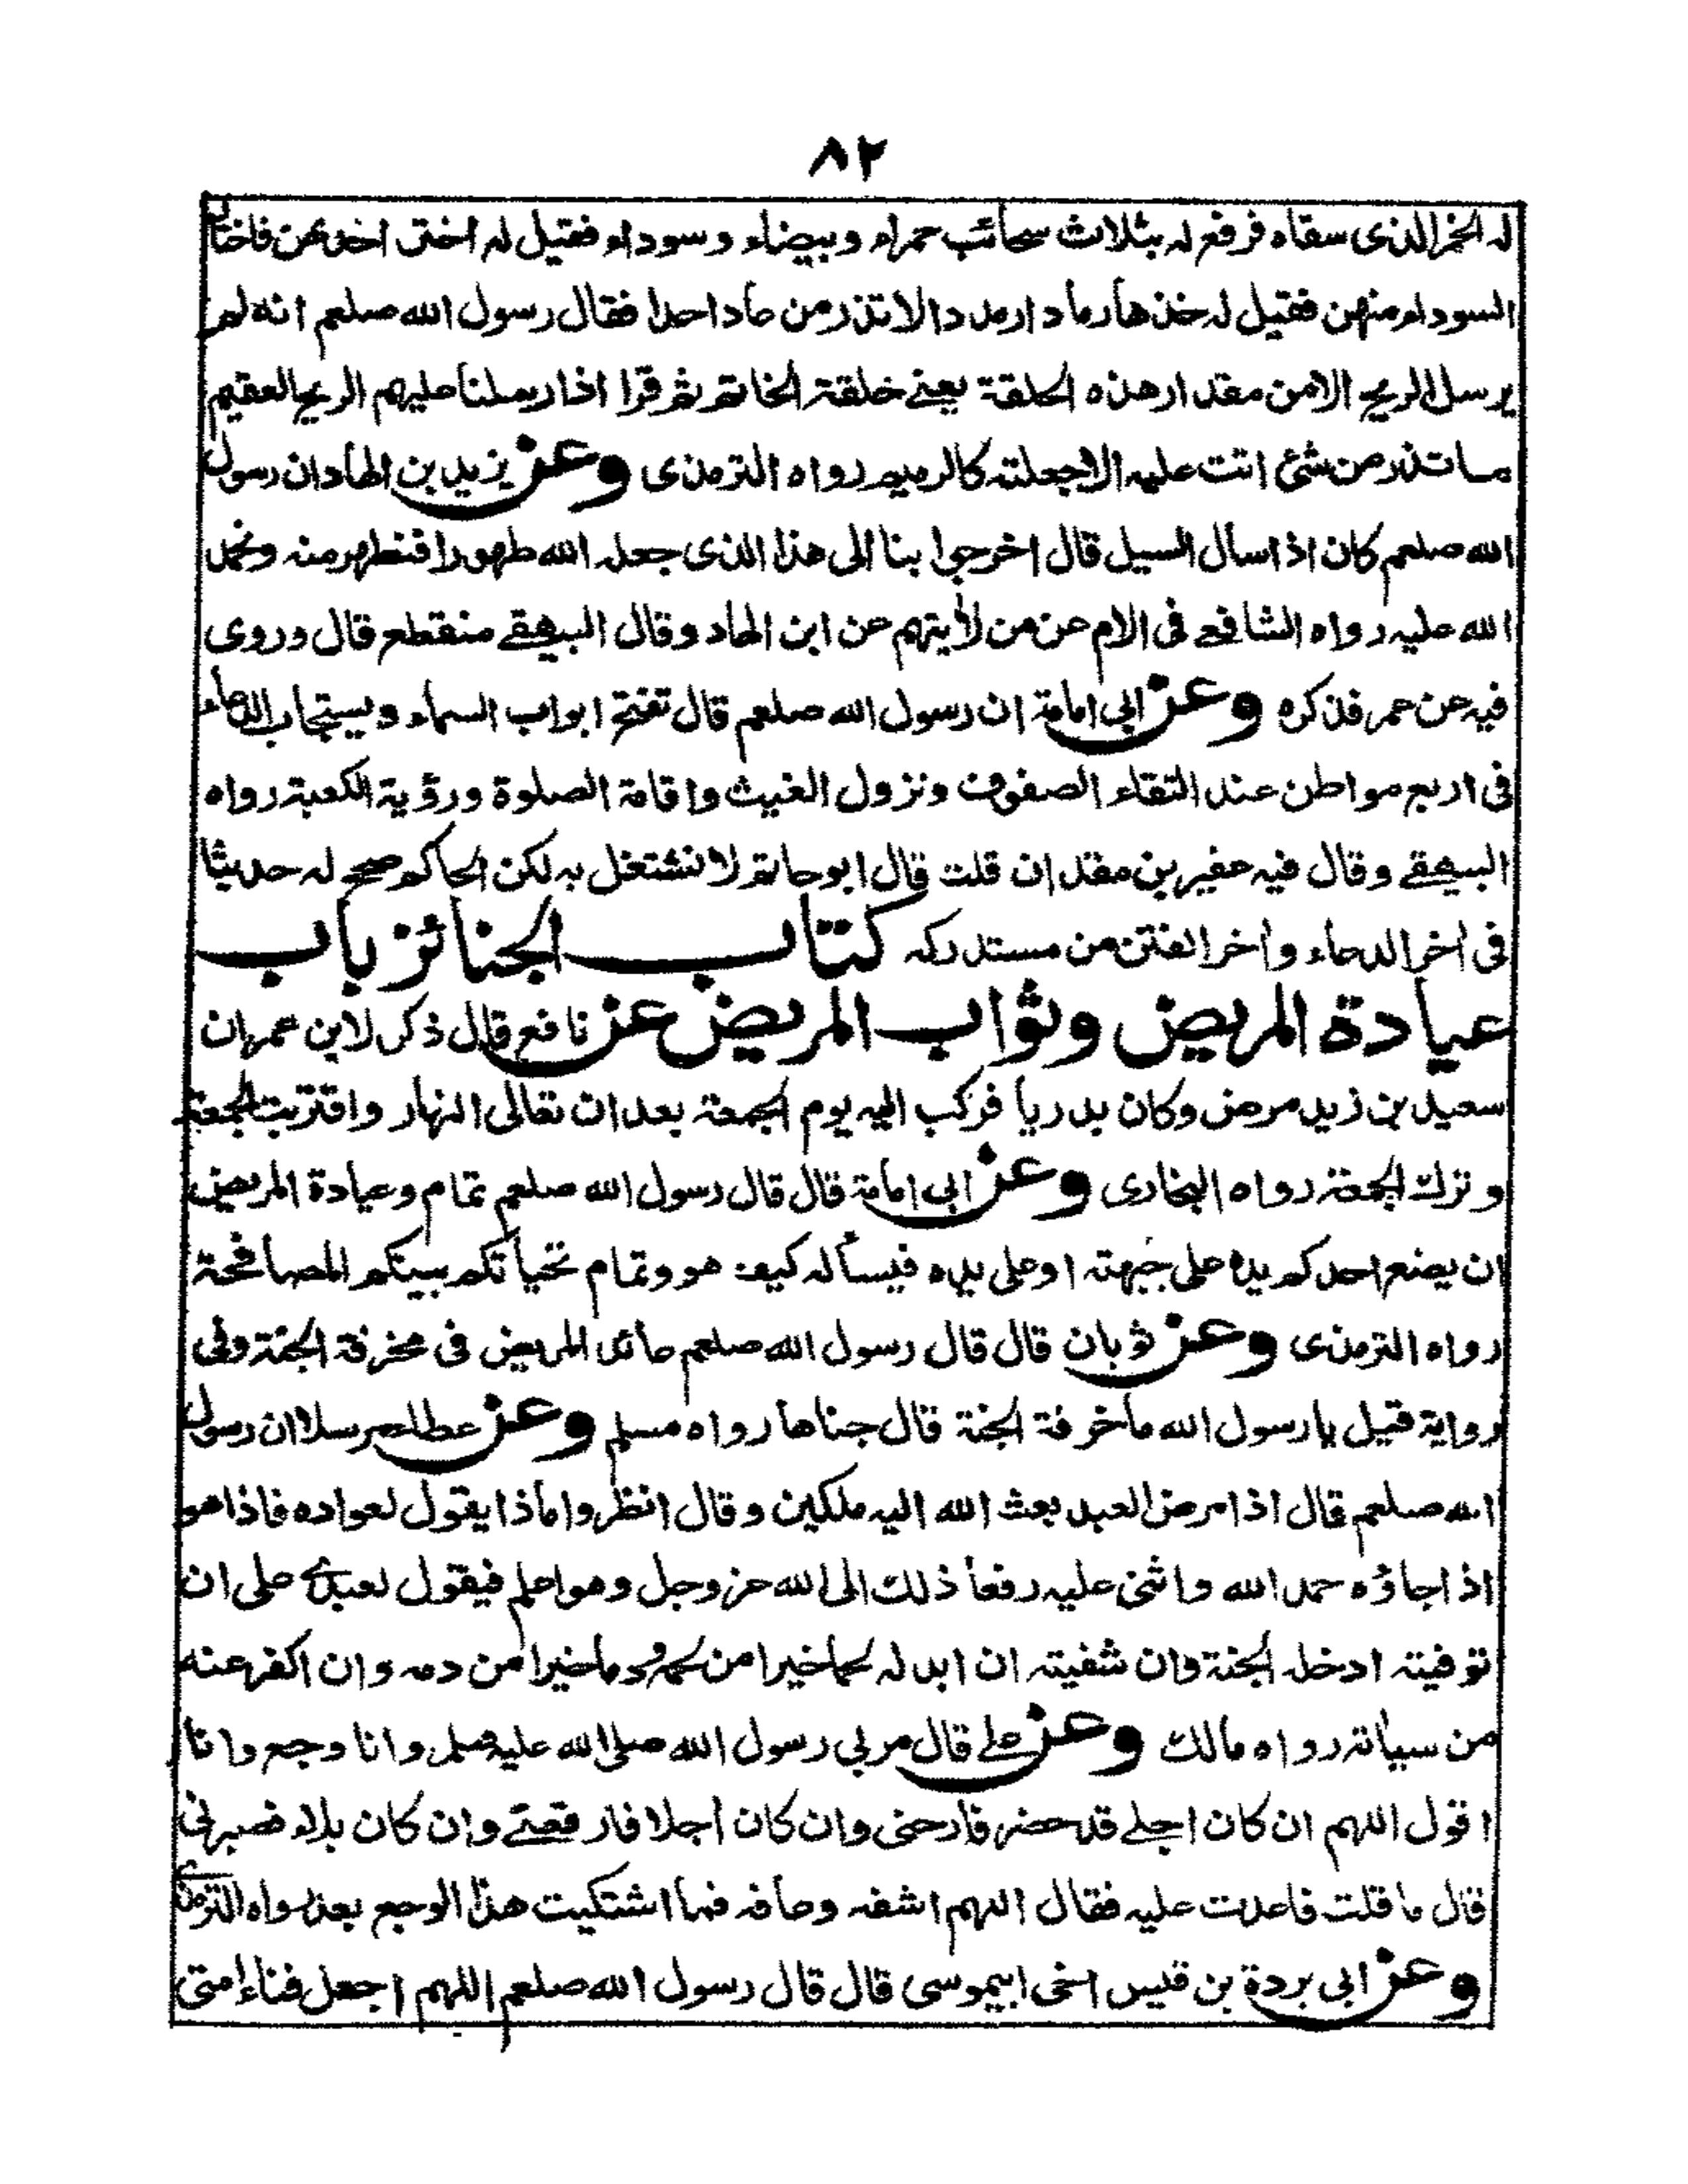 ٨٢
له الخمر الذى سقاه فرفع له بثلاث سحائب حمراء وبيضاء وسوداء فقيل له اختر احدىهن فاختار
السوداء منهن فقيل له خذها رمادا رمددا لا تذر من عاد احدا فقال رسول الله صلعم انه لم
يرسل الريح الا من مقدار هذه الحلقة يعنى حلقة الخاتم ثم قرا اذ ارسلنا عليهم الريح العقيم
ما تذر من شئ اتت عليه الا جعلته كالرميم رواه الترمذى وعن يزيد بن الهاد ان رسول
الله صلعم كان اذا سال السيل قال اخرجوا بنا الى هذا الذى جعله الله طهورا فنطهر منه ونحمد
الله عليه رواه الشافعى فى الام عن من لا يتهم عن ابن الهاد وقال البيهقى منقطع قال وروى
فيه عن عمر فذكره وعن ابى امامة ان رسول الله صلعم قال تفتح ابواب السماء ويستجاب الدعاء
فى اربع مواطن عند التقاء الصفوف ونزول الغيث واقامة الصلوة ورؤية الكعبة رواه
البيهقى وقال فيه عفير بن مقدان قلت قال ابو حاتم لا نشتغل به لكن الحاكم صحح له حديثا
فى اخر الدعاء واخر الفتن من مستدركه كتاب الجنائز باب
عيادة المريض وثواب المريض عن نافع قال ذكر لابن عمر ان
سعيد بن زيد مرض وكان بدريا فركب اليه يوم الجمعة بعد ان تعالى النهار واقتربت الجمعة
وترك الجمعة رواه البخارى وعن ابى امامة قال قال رسول الله صلعم تمام وعيادة المريض
ان يضع احدكم يده على جبهته او على يده فيسأله كيف هو وتمام تحياتكم بينكم المصافحة
رواه الترمذى وعن ثوبان قال قال رسول الله صلعم عائد المريض فى مخرفة الجنة وفى
رواية قيل يا رسول الله ما خرفة الجنة قال جناها رواه مسلم وعن عطا مرسلا ان رسول
الله صلعم قال اذا مرض العبد بعث الله اليه ملكين وقال انظروا ماذا يقول لعواده فاذا هو
اذا جاؤه حمد الله واثنى عليه رفعا ذلك الى الله عز وجل وهو اعلم فيقول لعبدى على ان
توفيته ادخله الجنة وان شفيته ان ابدله لحما خيرا من لحمه ودما خيرا من دمه وان اكفر عنه
من سياته رواه مالك وعن على قال مر بى رسول الله صلى الله عليه وسلم وانا وجع وانا
اقول اللهم ان كان اجلى قد حضر فارحنى وان كان اجلا فارفعنى وان كان بلاء فصبرنى
قال ما قلت فاعدت عليه فقال اللهم اشفه وعافه فما اشتكيت هذا الوجع بعد رواه الترمذى
وعن ابى بردة بن قيس اخى ابيموسى قال قال رسول الله صلعم اللهم اجعل فناء امتى